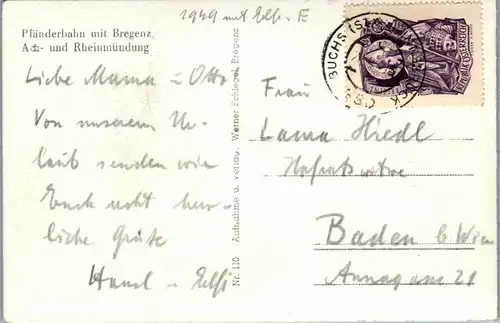 1949 mit Elfi. E
Pfänderbahn mit Bregenz,
Ach- und Rheinmündung
Liebe Mama u Otto
Von unserem Ur-
laub senden wir
Euch recht herz-
liche Grüße
Hansl u Elfi
Nr. 110 Aufnahme u. Verlag: Werner Schlegel, Bregenz
BUCHS (ST.G.)
Frau
Lama Hiedl
Hofratswitwe
Baden b Wien
Annagasse 21